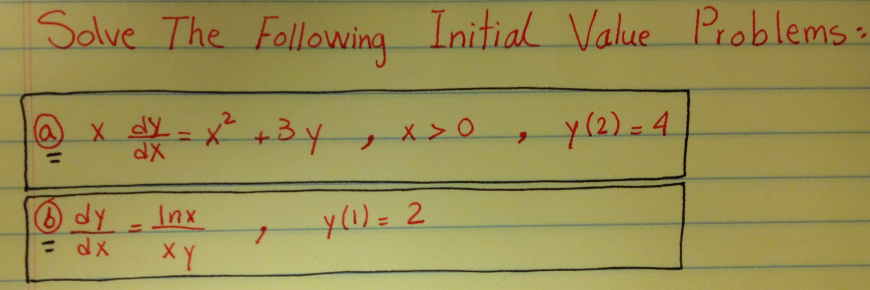 Solve The Following Initial Value Problems:
(a) x dy/dx = x² + 3y , x > 0 , y(2) = 4
(b) dy/dx = lnx/xy , y(1) = 2